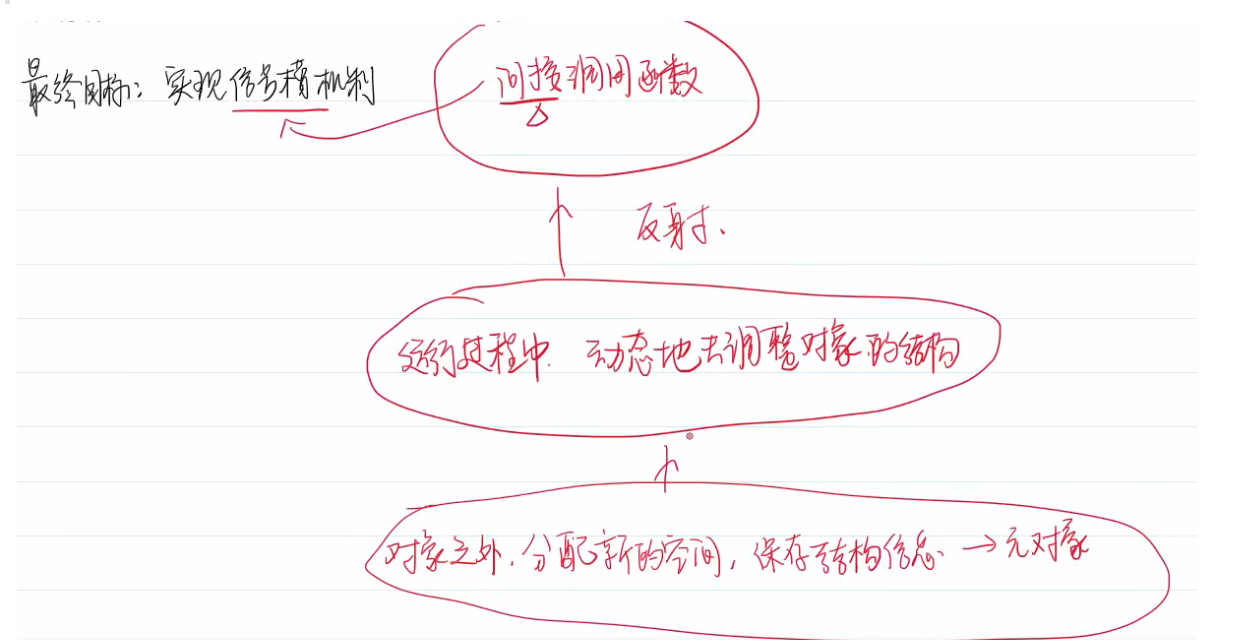 最终目标：实现信号槽机制
间接调用函数
反射、
运行过程中. 动态地去调整对象的结构
对象之外. 分配新的空间, 保存结构信息. → 元对象